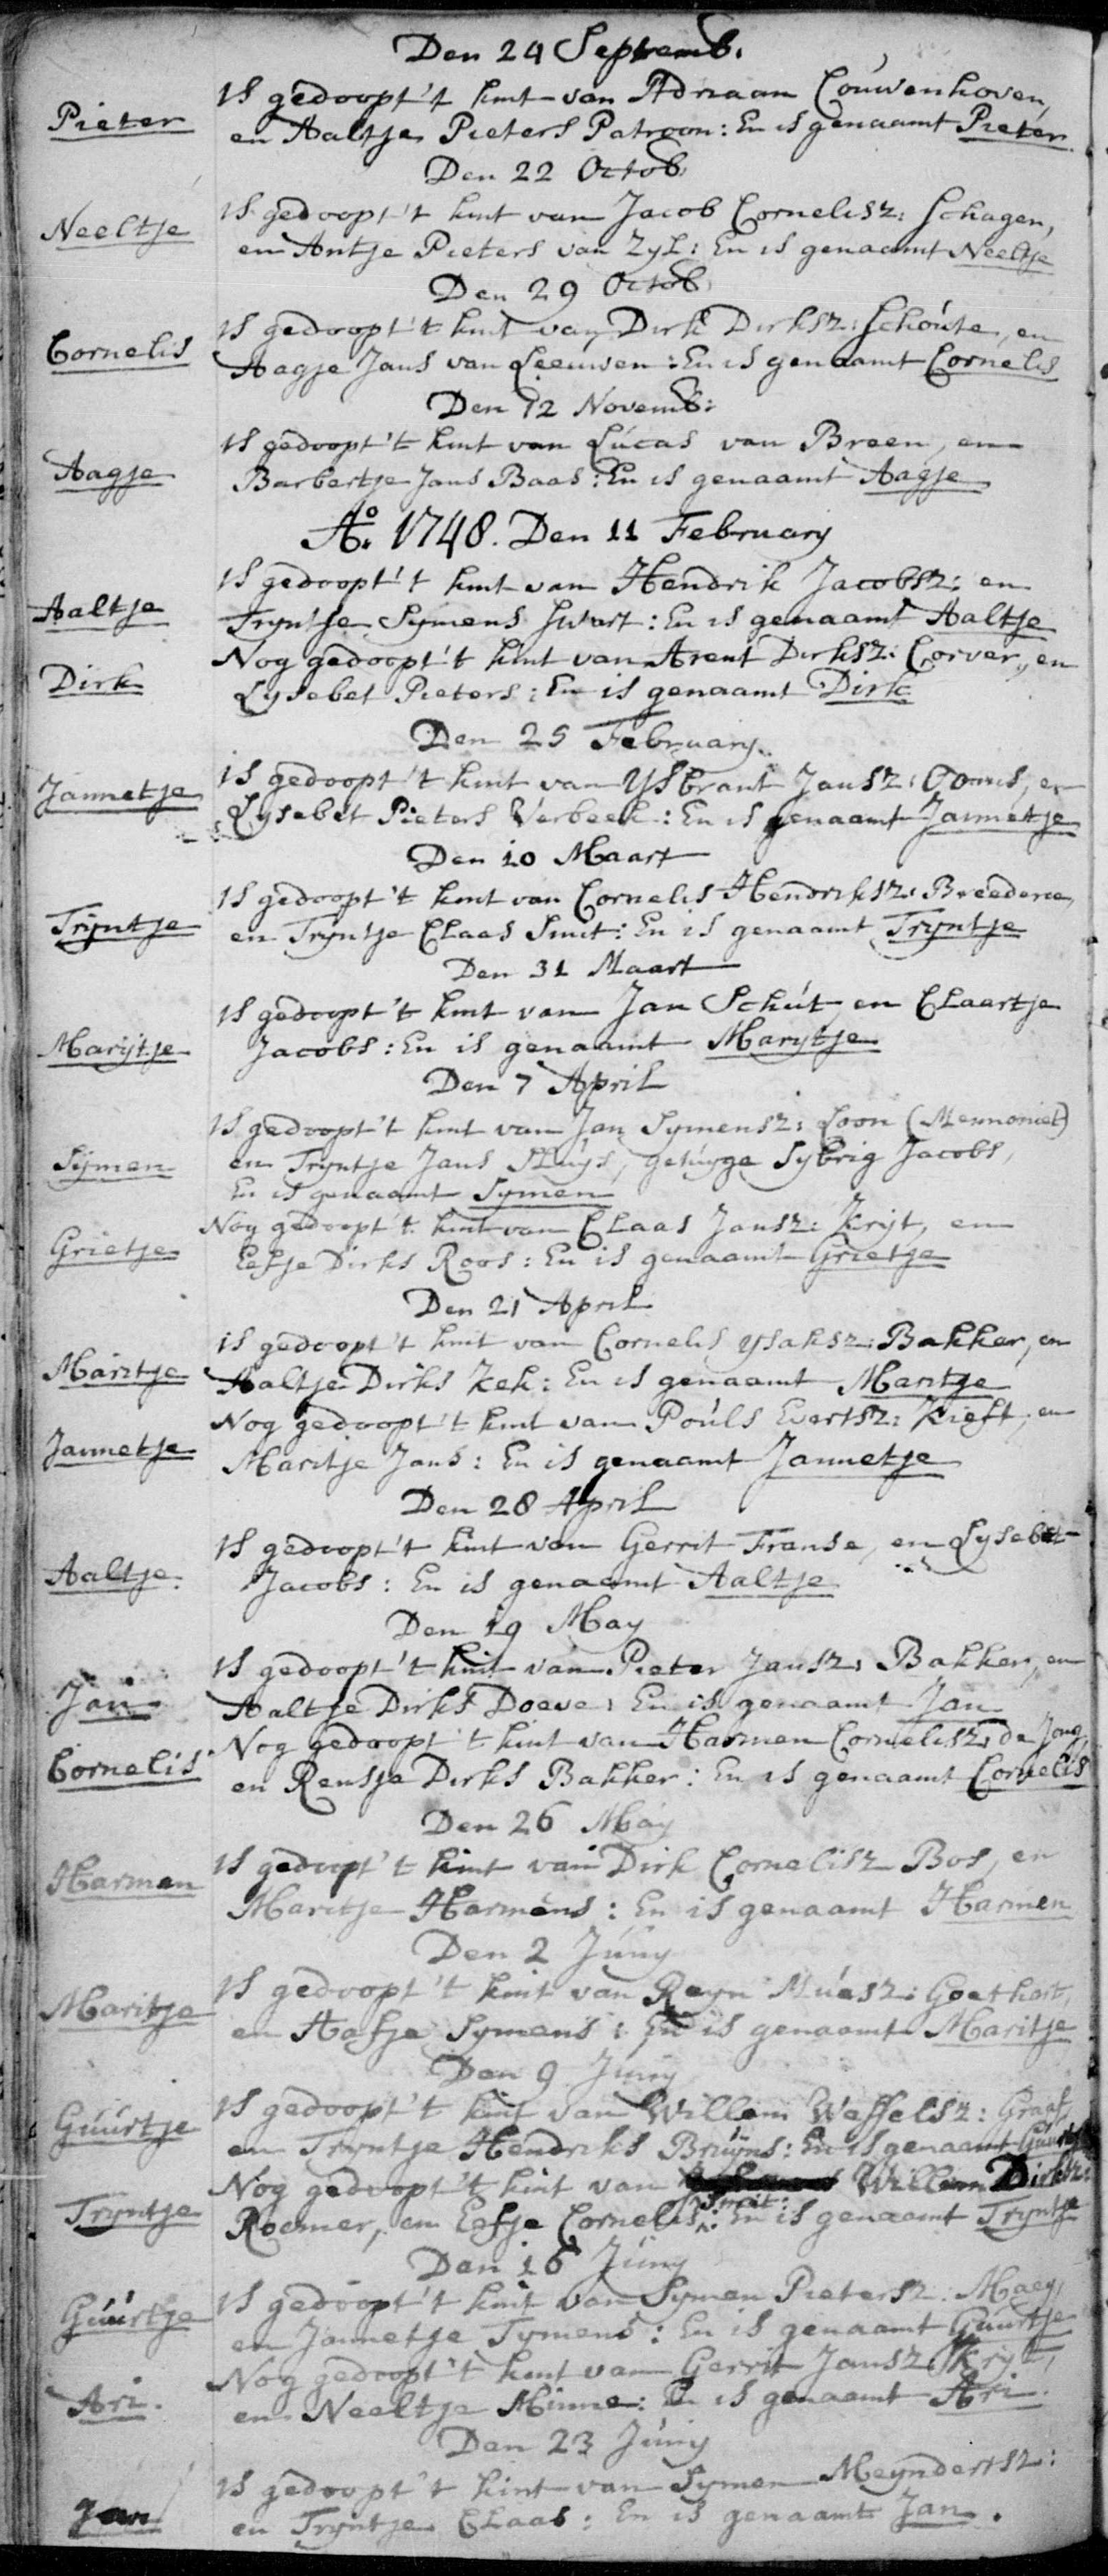 Den 24 Septemb.
Is gedoopt 't kint van Adriaan Couwenhoven,
Pieter en Aaltje Pieters Patroon: En is genaamt Pieter.
Den 22 Octob:
Neeltje Is gedoopt 't kint van Jacob Cornelisz: Schagen,
en Antje Pieters van Zyl: En is genaamt Neeltje
Den 29 Octob:
Cornelis Is gedoopt 't kint van Dirk Dirksz: Schoute, en
Aagje Jans van Leeuwen: En is genaamt Cornelis
Den 12 Novemb:
Is gedoopt 't kint van Lucas van Breen, en
Aagje Barbertje Jans Baas: En is genaamt Aagje
Ao. 1748. Den 11 February
Is gedoopt 't kint van Hendrik Jacobsz: en
Aaltje Tryntje Symens Swart: En is genaamt Aaltje
Nog gedoopt 't kint van Arent Dirksz: Corver, en
Dirk Lysebet Pieters: En is genaamt Dirk
Den 25 February.
Jannetje is gedoopt 't kint van Ysbrant Jansz: en
Lysebet Pieters Verbeek: En is genaamt Jannetje
Den 10 Maart
Is gedoopt 't kint van Cornelis Hendriksz: Breederoo,
Tryntje en Tryntje Claas Smit: En is genaamt Tryntje
Den 31 Maart
Is gedoopt 't kint van Jan Schut, en Claartje
Marijtje Jacobs: En is genaamt Marytje
Den 7 April
Is gedoopt 't kint van Jan Symensz: Loon (Mennoniet)
Symen en Tryntje Jans Sluys, getuyge Sybrig Jacobs,
En is genaamt Symen
Nog gedoopt 't kint van Claas Jansz: Kryt, en
Grietje Eefje Dirks Roos: En is genaamt Grietje
Den 21 April
is gedoopt 't kint van Cornelis Ysaksz: Bakker, en
Maritje Aaltje Dirks Kek: En is genaamt Maritje
Nog gedoopt 't kint van Pouls Evertsz: Kieft, en
Jannetje Maritje Jans: En is genaamt Jannetje
Den 28 April
Is gedoopt 't kint van Gerrit Franse, en Lysebet
Aaltje. Jacobs: En is genaamt Aaltje
Den 19 May
Is gedoopt 't kint van Pieter Jansz: Bakker, en
Jan Aaltje Dirks Doeve: En is genaamt Jan
Nog gedoopt 't kint van Harmen Cornelisz: de Jong,
Cornelis en Rensje Dirks Bakker: En is genaamt Cornelis
Den 26 May
Harmen Is gedoopt 't kint van Dirk Cornelisz Bos, en
Maritje Harmens: En is genaamt Harmen
Den 2 Juny
Is gedoopt 't kint van Reyn Muusz: Goethart,
Maritje en Aafje Symens: En is genaamt Maritje
Den 9 Juny
Guurtje Is gedoopt 't kint van Willem Wesselsz: Graaf,
en Tryntje Hendriks Bruyns: En is genaamt Guurtje
Nog gedoopt 't kint van Willem Dirksz:
Smit:
Tryntje Roemer, en Eefje Cornelis: En is genaamt Tryntje
Den 16 Juny
Guurtje Is gedoopt 't kint van Symen Pietersz: Maey,
en Jannetje Tymens: En is genaamt Guurtje
Nog gedoopt 't kint van Gerrit Jansz: Kryt,
Ari. en Neeltje Minne: En is genaamt Ari.
Den 23 Juny
Is gedoopt 't kint van Symen Meyndertsz:
Jan en Tryntje Claas: En is genaamt Jan.